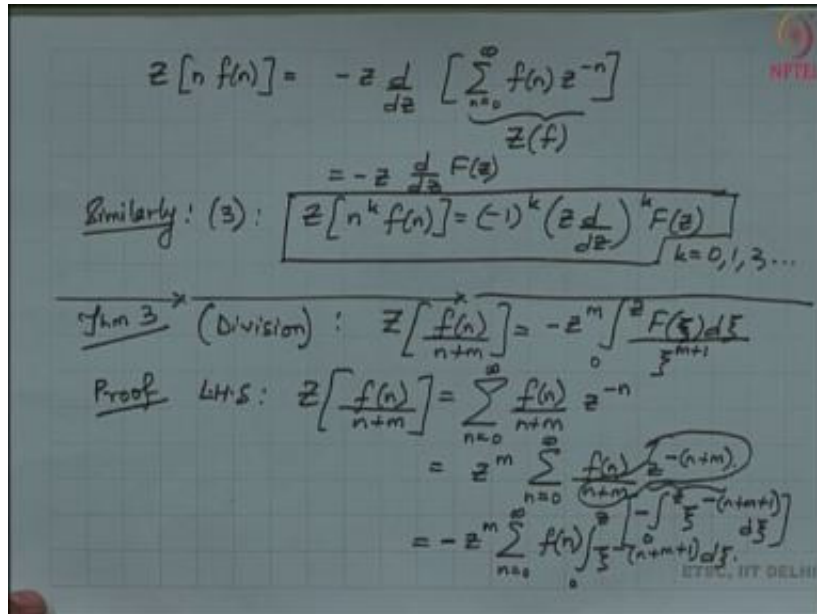 Z[n f(n)] = -z d/dz [∑_{n=0}^{∞} f(n) z^{-n}]
Z(f)
= -z d/dz F(z)
Similarly: (3): Z[n^k f(n)] = (-1)^k (z d/dz)^k F(z)
k = 0, 1, 2, ...
Thm 3 (Division): Z[f(n)/(n+m)] = -z^m ∫_0^z F(ξ)dξ/ξ^{m+1}
Proof L.H.S: Z[f(n)/(n+m)] = ∑_{n=0}^{∞} f(n)/(n+m) z^{-n}
= z^m ∑_{n=0}^{∞} f(n)/(n+m) z^{-(n+m)}.
[-∫_0^z ξ^{-(n+m+1)} dξ]
= -z^m ∑_{n=0}^{∞} f(n) ∫_0^z ξ^{-(n+m+1)} dξ.
NPTEL
ETSC, IIT DELHI